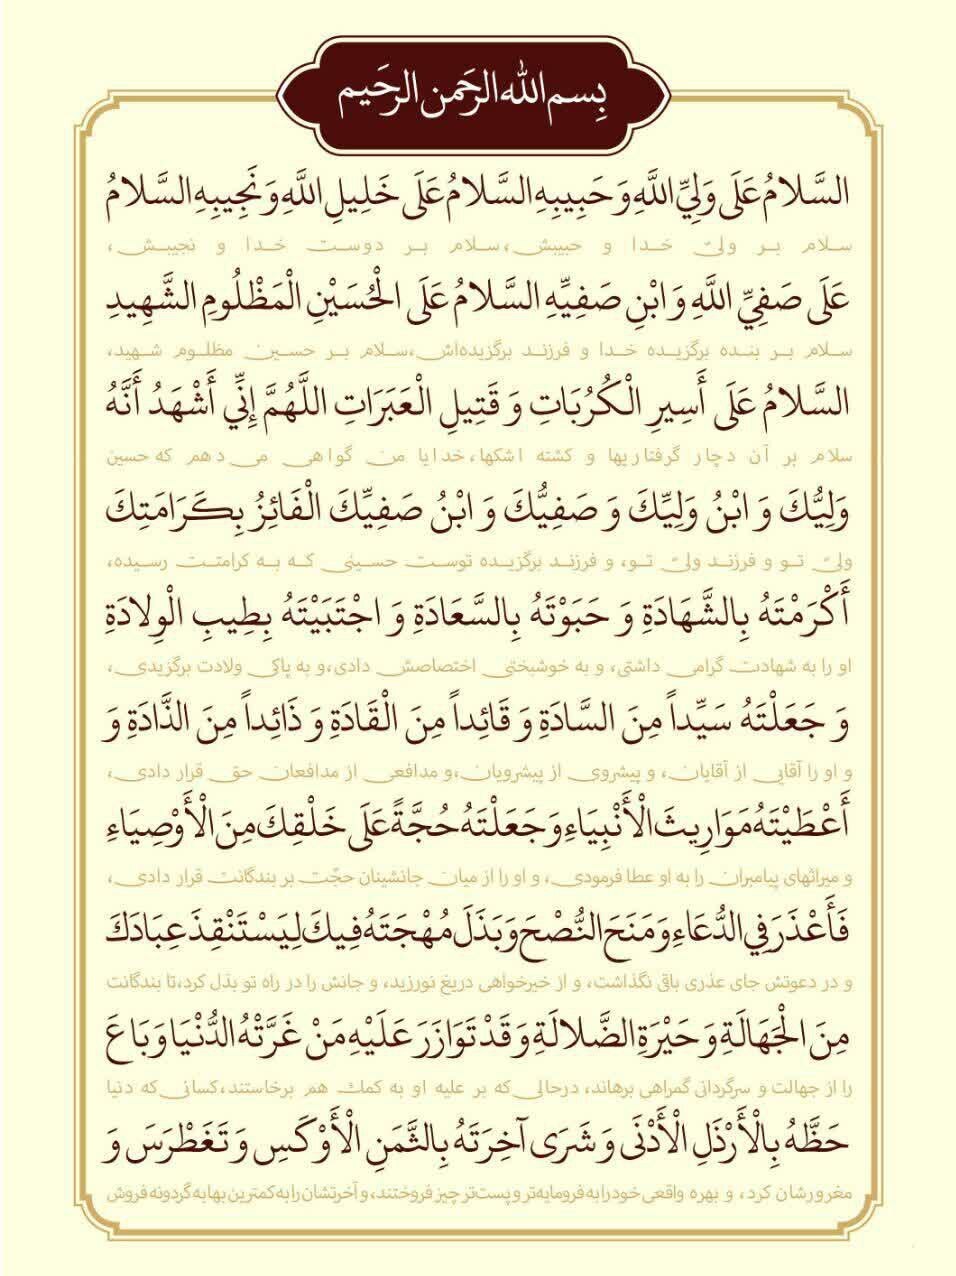 بِسم الله الرحَمن الرحَیم
السَّلامُ عَلَى وَلِيِّ اللَّهِ وَ حَبِيبِهِ السَّلامُ عَلَى خَلِيلِ اللَّهِ وَ نَجِيبِهِ السَّلامُ
سلام بر ولیّ خدا و حبیبش، سلام بر دوست خدا و نجیبش،
عَلَى صَفِيِّ اللَّهِ وَ ابْنِ صَفِيِّهِ السَّلامُ عَلَى الْحُسَيْنِ الْمَظْلُومِ الشَّهِيدِ
سلام بر بنده برگزیده خدا و فرزند برگزیده‌اش، سلام بر حسین مظلوم شهید،
السَّلامُ عَلَى أَسِيرِ الْكُرُبَاتِ وَ قَتِيلِ الْعَبَرَاتِ اللَّهُمَّ إِنِّي أَشْهَدُ أَنَّهُ
سلام بر آن دچار گرفتاریها و کشته اشکها، خدایا من گواهی می دهم که حسین
وَلِيُّكَ وَ ابْنُ وَلِيِّكَ وَ صَفِيُّكَ وَ ابْنُ صَفِيِّكَ الْفَائِزُ بِكَرَامَتِكَ
ولیّ تو و فرزند ولیّ تو، و فرزند برگزیده توست حسینی که به کرامتت رسیده،
أَكْرَمْتَهُ بِالشَّهَادَةِ وَ حَبَوْتَهُ بِالسَّعَادَةِ وَ اجْتَبَيْتَهُ بِطِيبِ الْوِلادَةِ
او را به شهادت گرامی داشتی، و به خوشبختی اختصاصش دادی، و به پاکی ولادت برگزیدی،
وَ جَعَلْتَهُ سَيِّداً مِنَ السَّادَةِ وَ قَائِداً مِنَ الْقَادَةِ وَ ذَائِداً مِنَ الذَّادَةِ وَ
و او را آقایی از آقایان، و پیشروی از پیشرویان، و مدافعی از مدافعان حق قرار دادی،
أَعْطَيْتَهُ مَوَارِيثَ الْأَنْبِيَاءِ وَ جَعَلْتَهُ حُجَّةً عَلَى خَلْقِكَ مِنَ الْأَوْصِيَاءِ
و میراثهای پیامبران را به او عطا فرمودی، و او را از میان جانشینان حجّت بر بندگانت قرار دادی،
فَأَعْذَرَ فِي الدُّعَاءِ وَ مَنَحَ النُّصْحَ وَ بَذَلَ مُهْجَتَهُ فِيكَ لِيَسْتَنْقِذَ عِبَادَكَ
و در دعوتش جای عذری باقی نگذاشت، و از خیرخواهی دریغ نورزید، و جانش را در راه تو بذل کرد، تا بندگانت
مِنَ الْجَهَالَةِ وَ حَيْرَةِ الضَّلالَةِ وَ قَدْ تَوَازَرَ عَلَيْهِ مَنْ غَرَّتْهُ الدُّنْيَا وَ بَاعَ
را از جهالت و سرگردانی گمراهی برهاند، درحالی که بر علیه او به کمک هم برخاستند، کسانی که دنیا
حَظَّهُ بِالْأَرْذَلِ الْأَدْنَى وَ شَرَى آخِرَتَهُ بِالثَّمَنِ الْأَوْكَسِ وَ تَغَطْرَسَ وَ
مغرورشان کرد، و بهره واقعی خود را به فرومایه‌تر و پست‌تر چیز فروختند، و آخرتشان را به کمترین بها به گردونه فروش